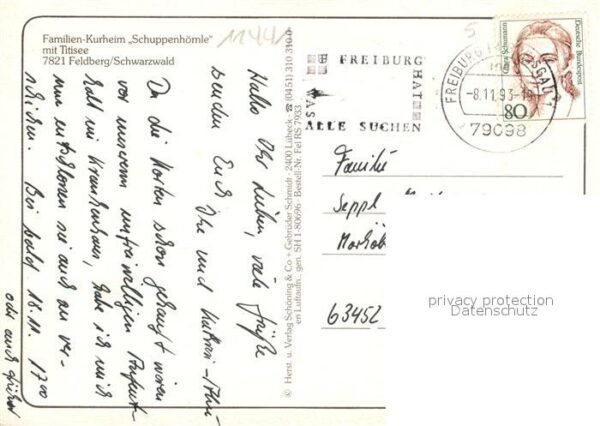 Familien-Kurheim „Schuppenhörnle"
mit Titisee
7821 Feldberg/Schwarzwald
1244
Hallo Ihr Lieben, viele Grüße
senden Euch Ute und
Da die Karten schon gekauft waren
vor unserem unfreiwilligen Aufent-
halt im Krankenhaus, habe ich mich
nun entschlossen sie auch zu ver-
schicken. Bis bald 16.11. 17.00
oder auch früher
© Herst. u. Verlag Schöning & Co + Gebrüder Schmidt · 2400 Lübeck · ☎ (0451) 310 310
en Luftaufn., gen. SH 1-80696 · Bestell-Nr. Fel RS 7933
FREIBURG
HAT
WAS
ALLE SUCHEN
FREIBURG
-8.11.93-
79098
Deutsche Bundespost
Clara Schumann
80
Familie
Seppl
63452
privacy protection
Datenschutz